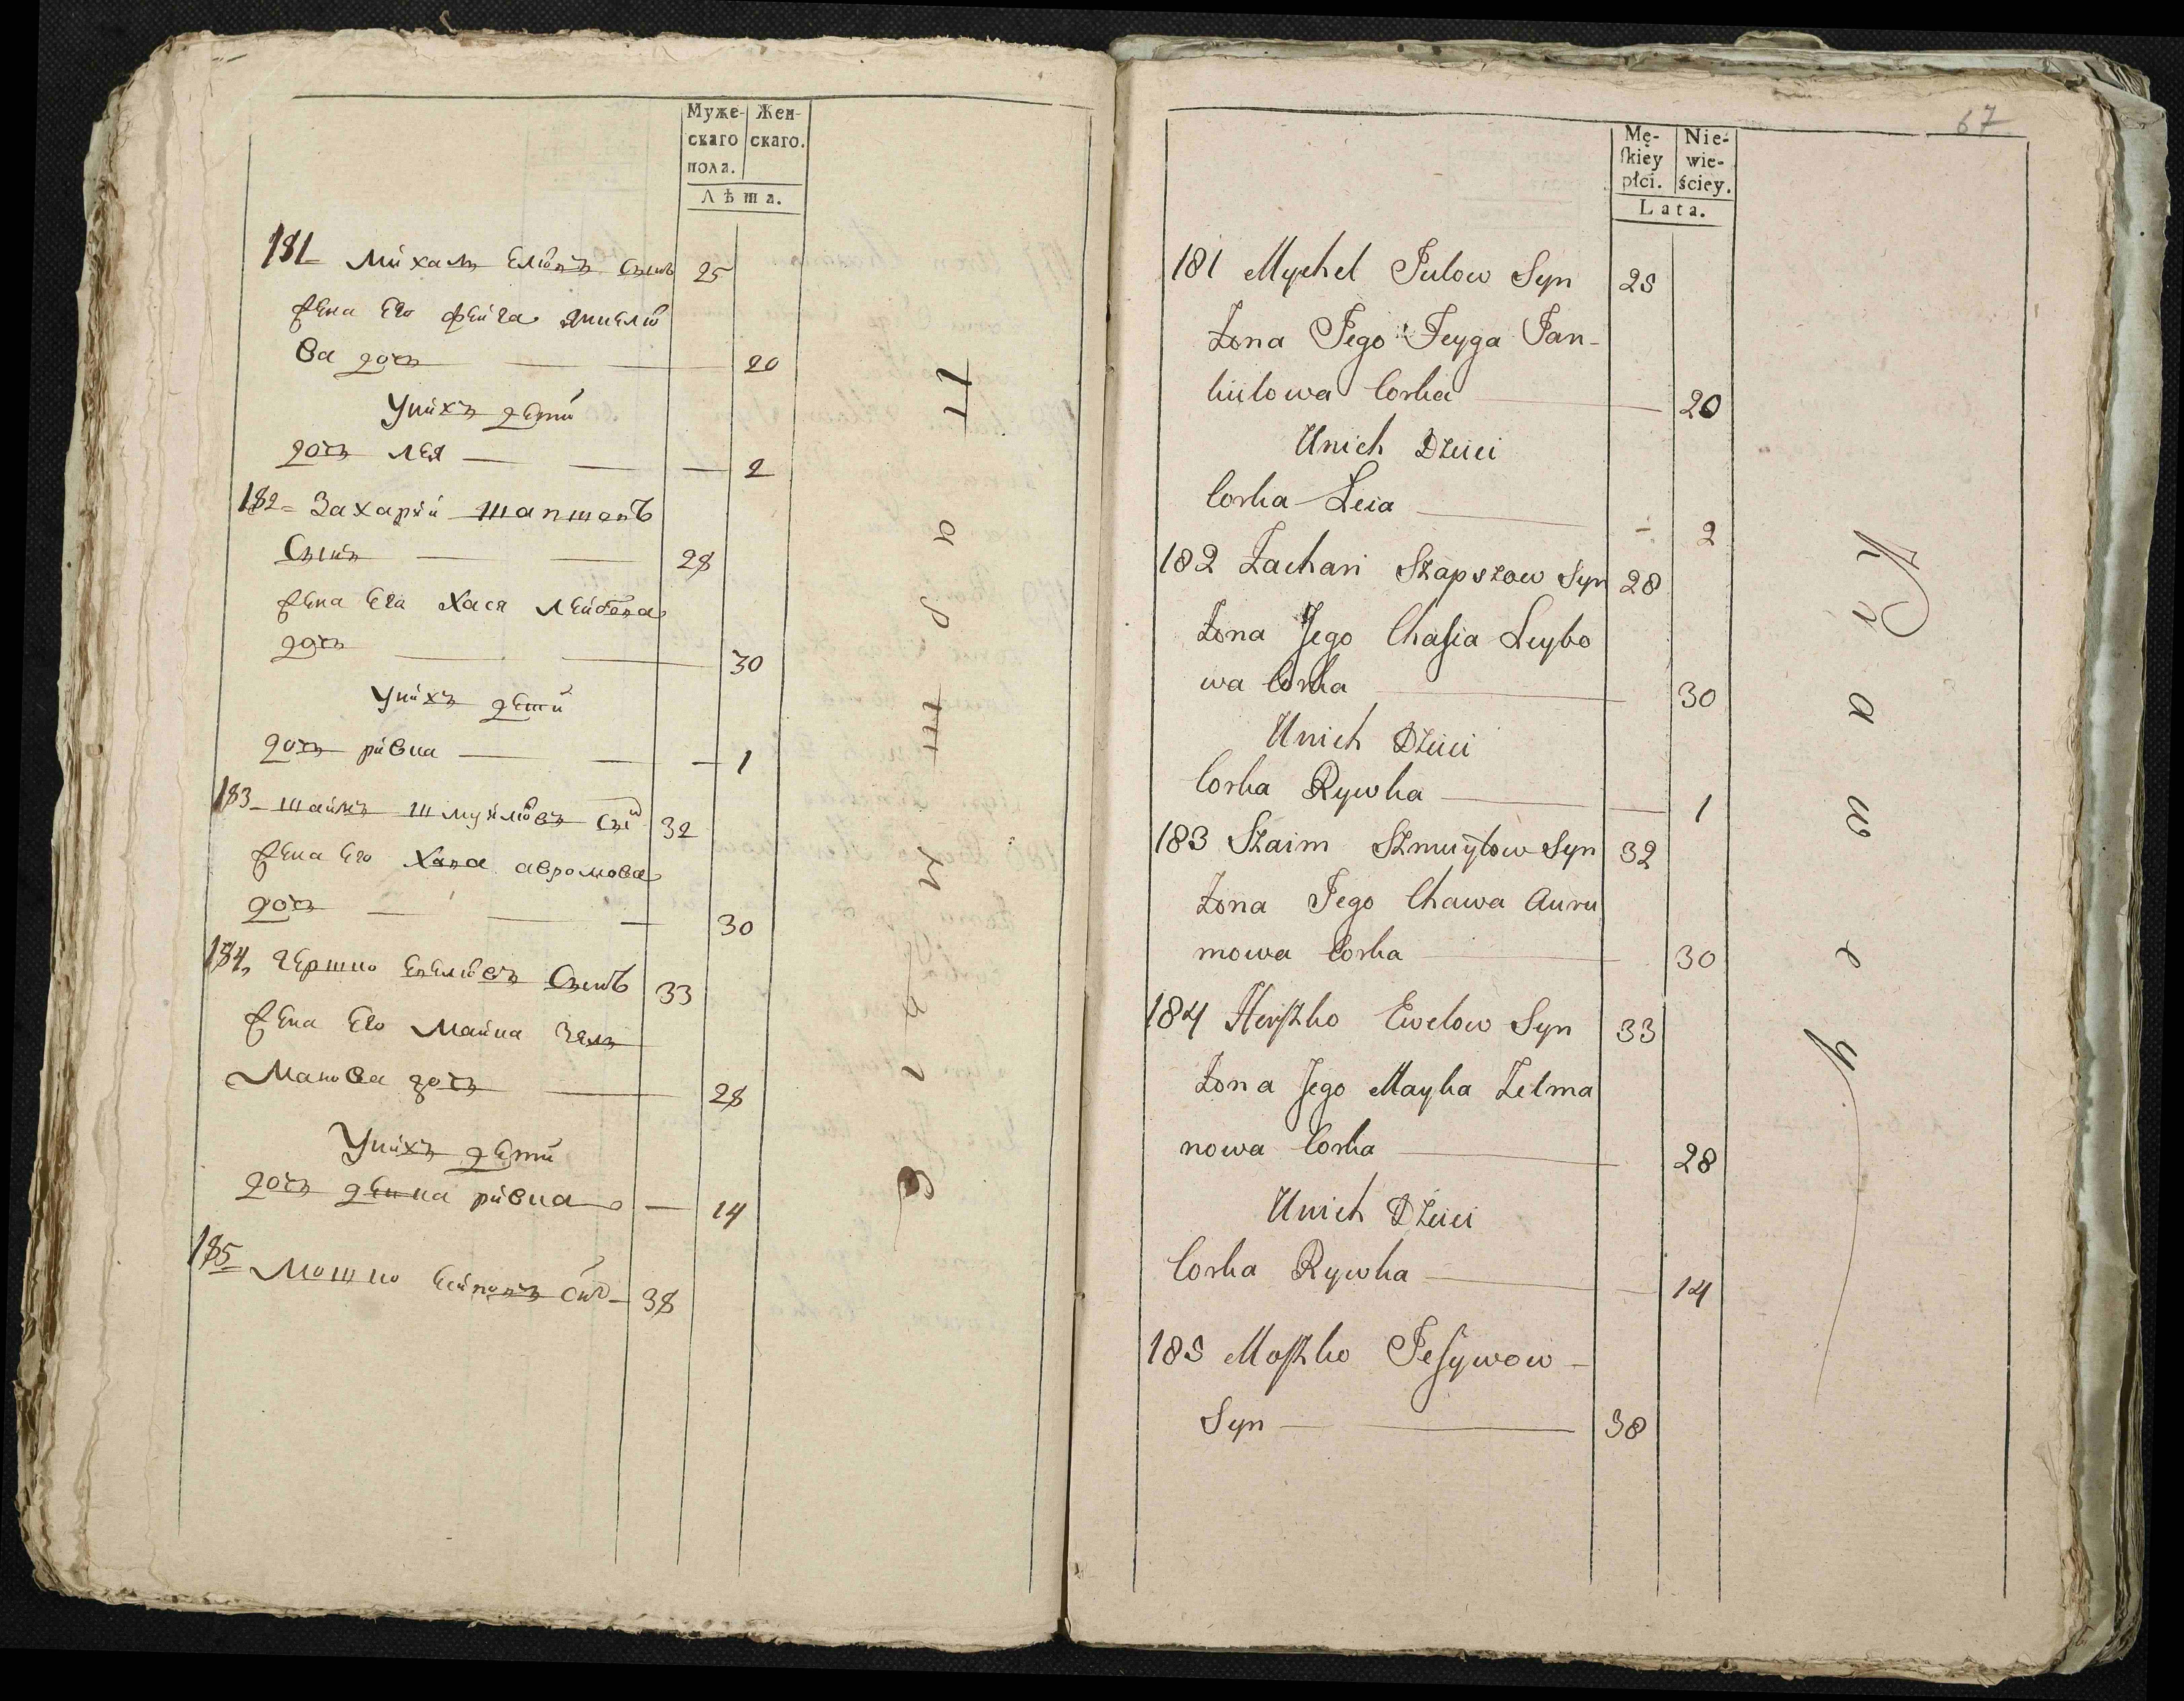 Муже-
скаго
пола.
Жен-
скаго.
Лѣта.
181 Михаль Сынъ 25
жена Его фейга Янкелю
ва дочь — — 20
Унихъ дети
дочь лея — — — 2
182 Захарїй шапшовъ
Сынъ — — 28
жена Его Хася лейбова
дочь — — 30
Унихъ дети
дочь ривка — — — 1
183 шаимъ шмуйловъ Сынъ 32
жена Его Хава аврамова
дочь — — — 30
184 гершко евелювъ Сынъ 33
жена Его Майка Зель
манова дочь — 28
Унихъ дети
дочь ривка — 14
185 Мошко Сынъ — 38
67
Mę-
ſkiey
płci.
Nie-
wie-
ściey.
Lata.
181 Mychel Julow Syn 25
Zona Jego Feyga Jan-
kielowa Corka — 20
Unich Dzieci
Corka Leia — - 2
182 Zachari Szapszow Syn 28
Zona Jego Chaſia Leybo
wa Corka — 30
Unich Dzieci
Corka Rywka — — 1
183 Szaim Szmuyłow Syn 32
Zona Jego Chawa Auru
mowa Corka — 30
184 Herſzko Ewelow Syn 33
Zona Jego Mayka Zelma
nowa Corka — 28
Unich Dzieci
Corka Rywka — — 14
185 Moſzko Jeſywow -
Syn — — 38